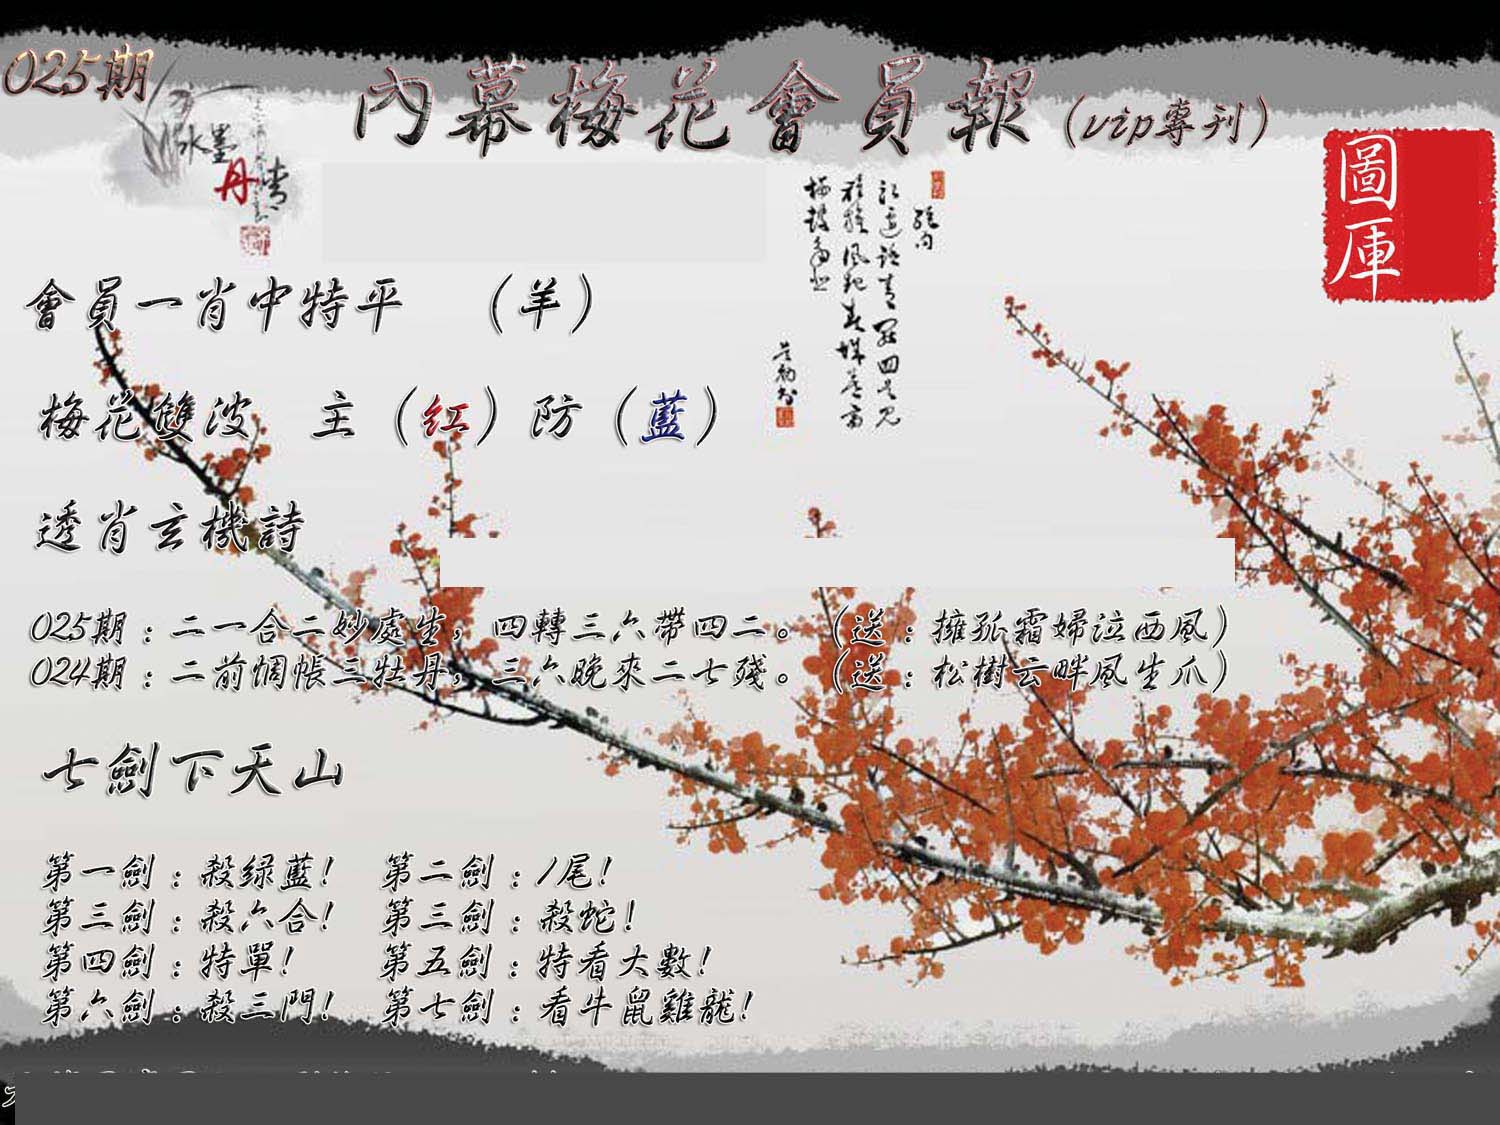 025期
內幕梅花會員報（vip專刊）
水墨
丹青
圖庫
會員一肖中特平 （羊）
梅花雙波 主（红）防（藍）
透肖玄機詩
025期：二一合二妙處生，四轉三六帶四二。（送：擁孤霜婦泣西風）
024期：二前惆帳三牡丹，三六晚來二七殘。（送：松樹云畔風生爪）
七劍下天山
第一劍：殺绿藍！ 第二劍：1尾！
第三劍：殺六合！ 第三劍：殺蛇！
第四劍：特單！ 第五劍：特看大數！
第六劍：殺三門！ 第七劍：看牛鼠雞龍！